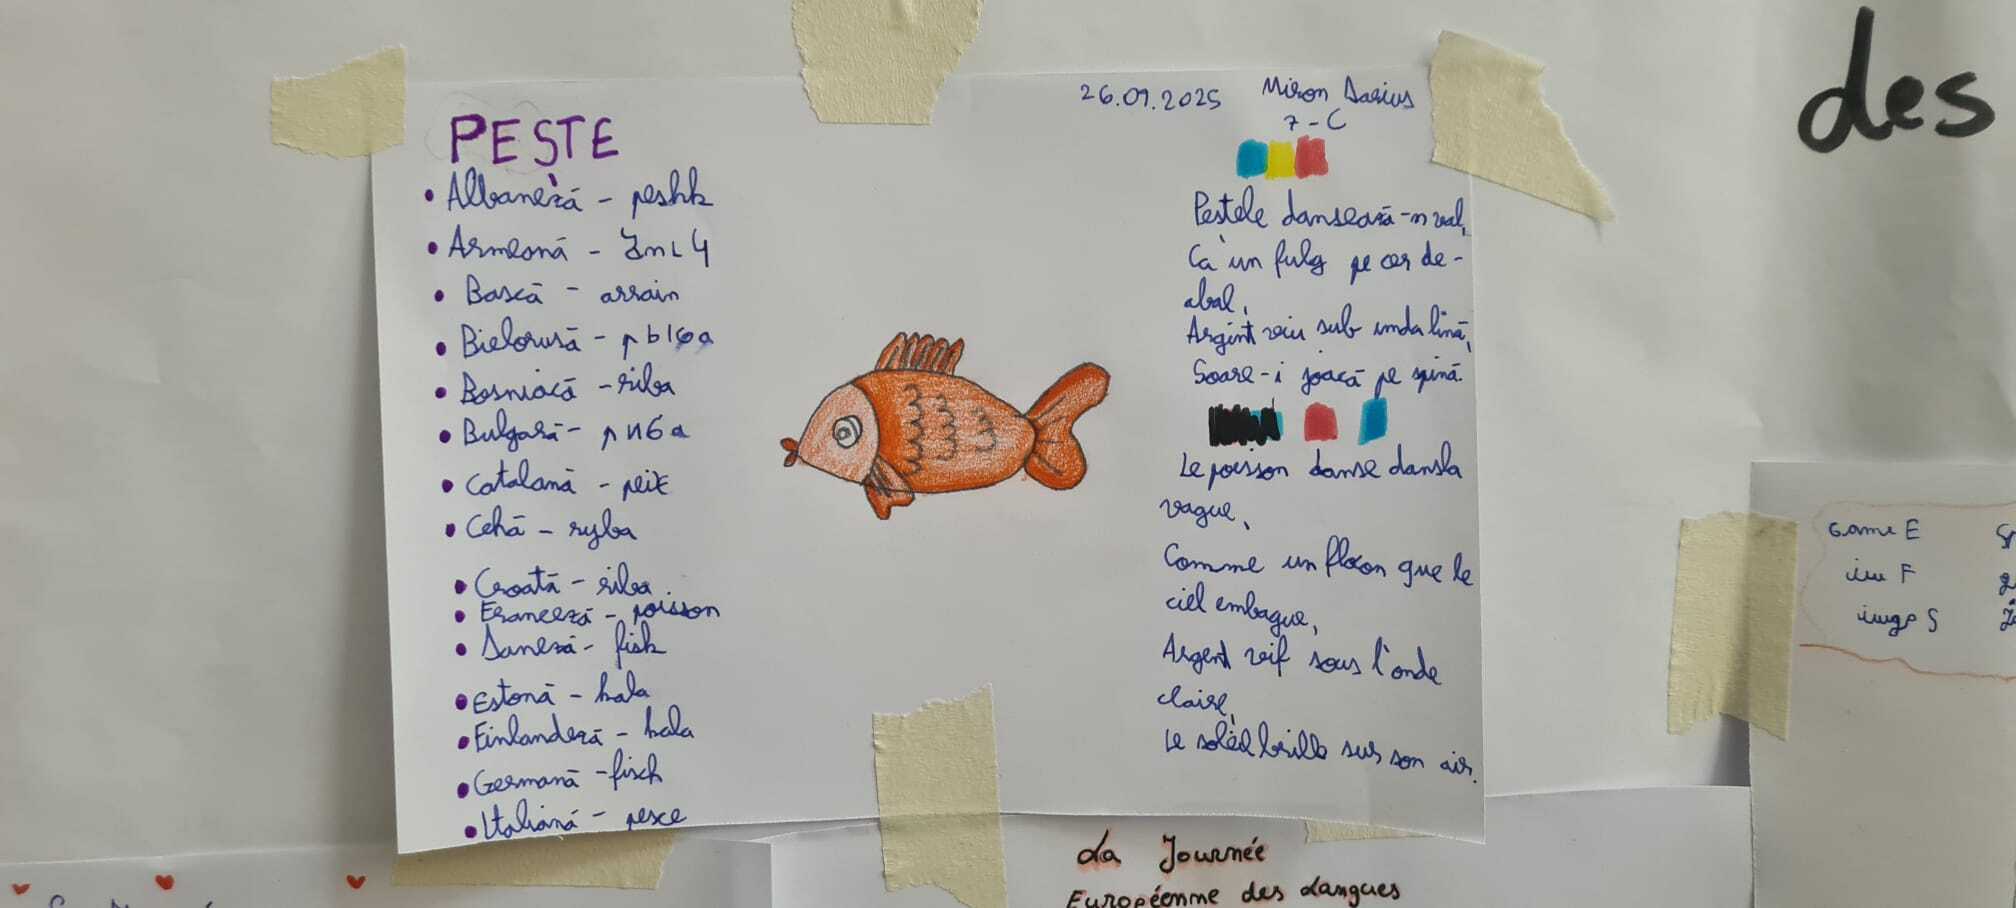 PEȘTE
• Albaneză - peshk
• Armeană - Ձուկ
• Bască - arrain
• Bielorusă - рыба
• Bosniacă - riba
• Bulgară - риба
• Catalană - peix
• Cehă - ryba
• Croată - riba
• Franceză - poisson
• Daneză - fisk
• Estonă - kala
• Finlandeză - kala
• Germană - fisch
• Italiană - pesce
26.09.2025
Miron Darius
7-C
Peștele dansează-n val,
Ca un fulg pe cer de-
abal,
Argint viu sub unda lină,
Soare-i joacă pe spină.
Le poisson danse dansla
vague,
Comme un flocon que le
ciel embague,
Argent vif sous l'onde
claire,
Le soleil brille sur son air.
des
Game E
iuu F
iuuge S
La Journée
Européenne des Langues